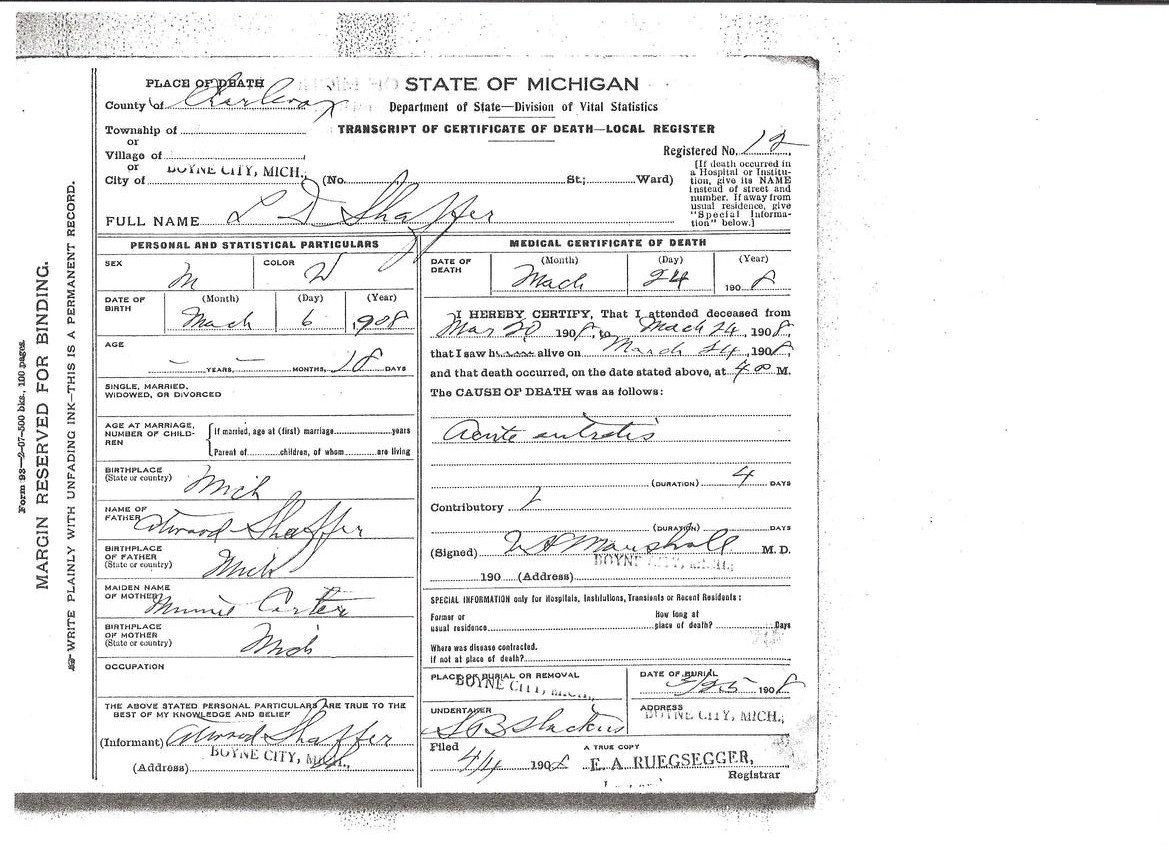 PLACE OF DEATH
STATE OF MICHIGAN
County of Charlevoix
Department of State—Division of Vital Statistics
Township of
or
TRANSCRIPT OF CERTIFICATE OF DEATH—LOCAL REGISTER
Village of
or
Registered No. 12
City of BOYNE CITY, MICH., (No. St.; Ward)
[If death occurred in
a Hospital or Institu-
tion, give its NAME
instead of street and
number. If away from
usual residence, give
"Special Informa-
tion" below.]
FULL NAME L D Shaffer
PERSONAL AND STATISTICAL PARTICULARS
SEX M
COLOR W
DATE OF BIRTH
(Month) (Day) (Year)
Mach 6 1908
AGE
— YEARS, — MONTHS, 18 DAYS
SINGLE, MARRIED,
WIDOWED, OR DIVORCED
AGE AT MARRIAGE,
NUMBER OF CHILD-
REN
If married, age at (first) marriage years
Parent of children, of whom are living
BIRTHPLACE
(State or country) Mich
NAME OF
FATHER Atwood Shaffer
BIRTHPLACE
OF FATHER
(State or country) Mich
MAIDEN NAME
OF MOTHER Minnie Carter
BIRTHPLACE
OF MOTHER
(State or country) Mich
OCCUPATION
THE ABOVE STATED PERSONAL PARTICULARS ARE TRUE TO THE
BEST OF MY KNOWLEDGE AND BELIEF
(Informant) Atwood Shaffer
(Address) BOYNE CITY, MICH.
MEDICAL CERTIFICATE OF DEATH
DATE OF
DEATH
(Month) (Day) (Year)
Mach 24 1908
I HEREBY CERTIFY, That I attended deceased from
Mar 20 1908, to Mach 24, 1908,
that I saw h alive on March 24, 1908,
and that death occurred, on the date stated above, at 4 00 M.
The CAUSE OF DEATH was as follows:
Acute
(DURATION) 4 DAYS
Contributory
(DURATION) DAYS
(Signed) Marshall M. D.
BOYNE CITY, MICH.,
190 (Address)
SPECIAL INFORMATION only for Hospitals, Institutions, Transients or Recent Residents:
Former or
usual residence
How long at
place of death? Days
Where was disease contracted,
If not at place of death?
PLACE OF BURIAL OR REMOVAL
BOYNE CITY, MICH.,
DATE OF BURIAL
3/25 1908
UNDERTAKER
S B
ADDRESS
BOYNE CITY, MICH.,
Filed
4/4 1908
A TRUE COPY
E. A. RUEGSEGGER,
Registrar
Form 98—2-07-500 bks., 100 pages.
MARGIN RESERVED FOR BINDING.
WRITE PLAINLY WITH UNFADING INK—THIS IS A PERMANENT RECORD.